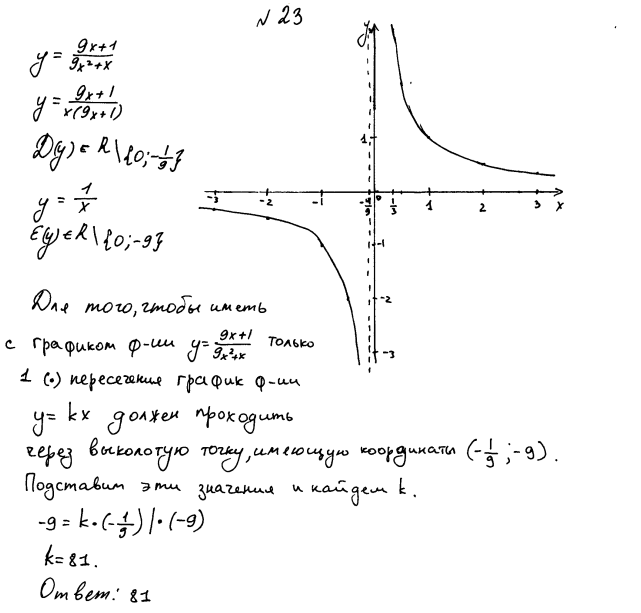 № 23
y = (9x+1)/(9x²+x)
y = (9x+1)/(x(9x+1))
D(y) ∈ R \ {0; -1/9}
y = 1/x
E(y) ∈ R \ {0; -9}
y
1
-3 -2 -1 -1/9 0 1/3 1 2 3 x
-1
-2
-3
Для того, чтобы иметь
с графиком ф-ии y = (9x+1)/(9x²+x) только
1 (•) пересечения график ф-ии
y = kx должен проходить
через выколотую точку, имеющую координаты (-1/9; -9).
Подставим эти значения и найдем k.
-9 = k · (-1/9) | · (-9)
k = 81.
Ответ: 81